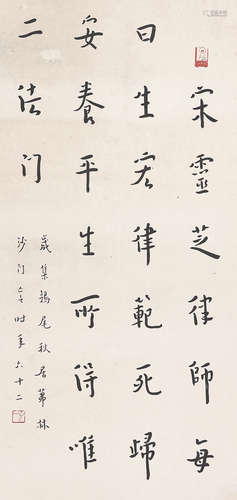 宋靈芝律師每
曰生宏律範死歸
安養平生所得唯
二法门
歲集鶉尾秋居茀林
沙门亡言时年六十二